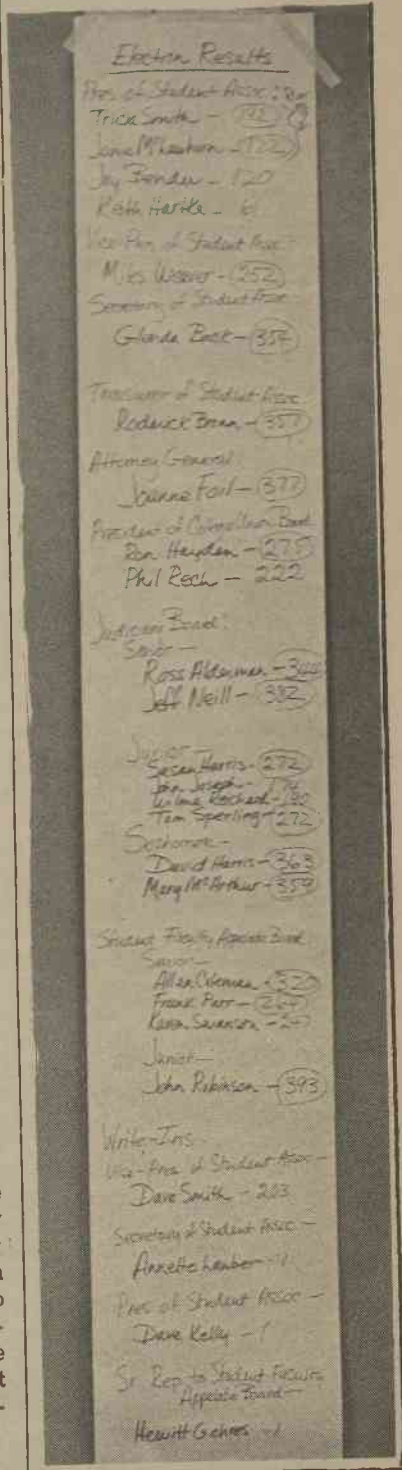 Election Results
Pres of Student Assoc:
Tricia Smith - 192
Janie - 122
Jay Bender - 120
Keith Hartke - 61
Vice-Pres. of Student Assoc:
Miles Weaver - 252
Secretary of Student Assoc
Glenda - 354
Treasurer of Student Assoc
Roderick - 357
Attorney General:
Joanne Foil - 377
President of Board
Ron Hayden - 275
Phil Rech - 222
Judiciary Board:
Senior -
Ross Alderman - 344
Jeff Neill - 382
Junior -
Susan Harris - 272
John Joseph -
Wilma -
Tom Sperling - 272
Sophomore -
David Harris - 363
Mary McArthur - 359
Student Faculty Board
Senior -
Allen Coleman - 320
Frank Parr - 264
Karen Swanson -
Junior -
John Robinson - 393
Write-Ins
Vice-Pres of Student Assoc -
Dave Smith - 203
Secretary of Student Assoc -
Annette - 1
Pres of Student Assoc -
Dave Kelly - 1
Sr. Rep to Student Faculty
Board -
Hewitt - 1